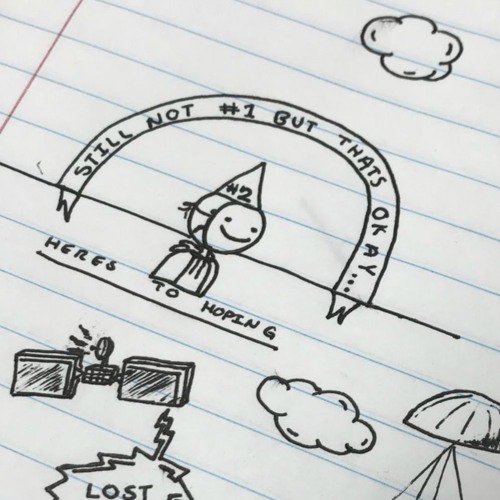 STILL NOT #1 BUT THATS OKAY...
#2
HERES TO HOPING
LOST